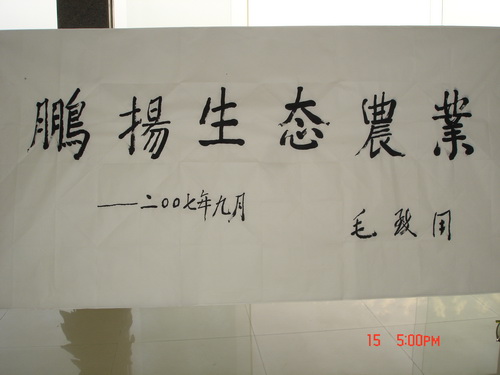 鵬揚生态農業
——二〇〇七年九月
毛致用
15 5:00PM